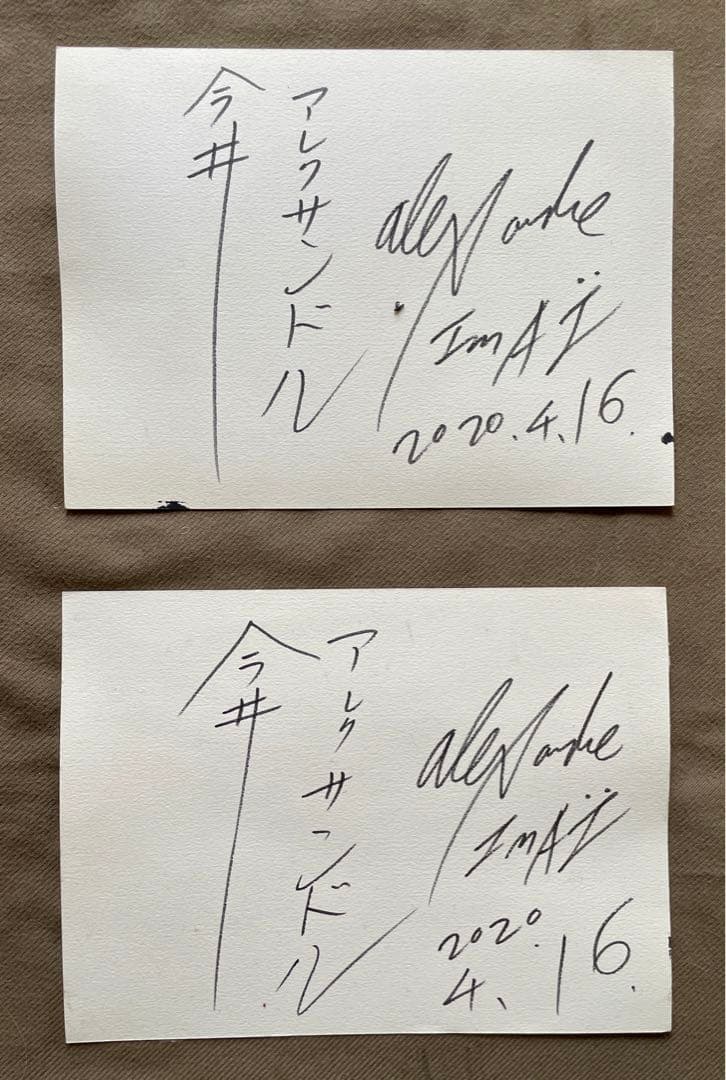 アレクサンドル
今井
alexandre
ImAÏ
2020.4.16.
アレクサンドル
今井
alexandre
ImAÏ
2020.
4.16.